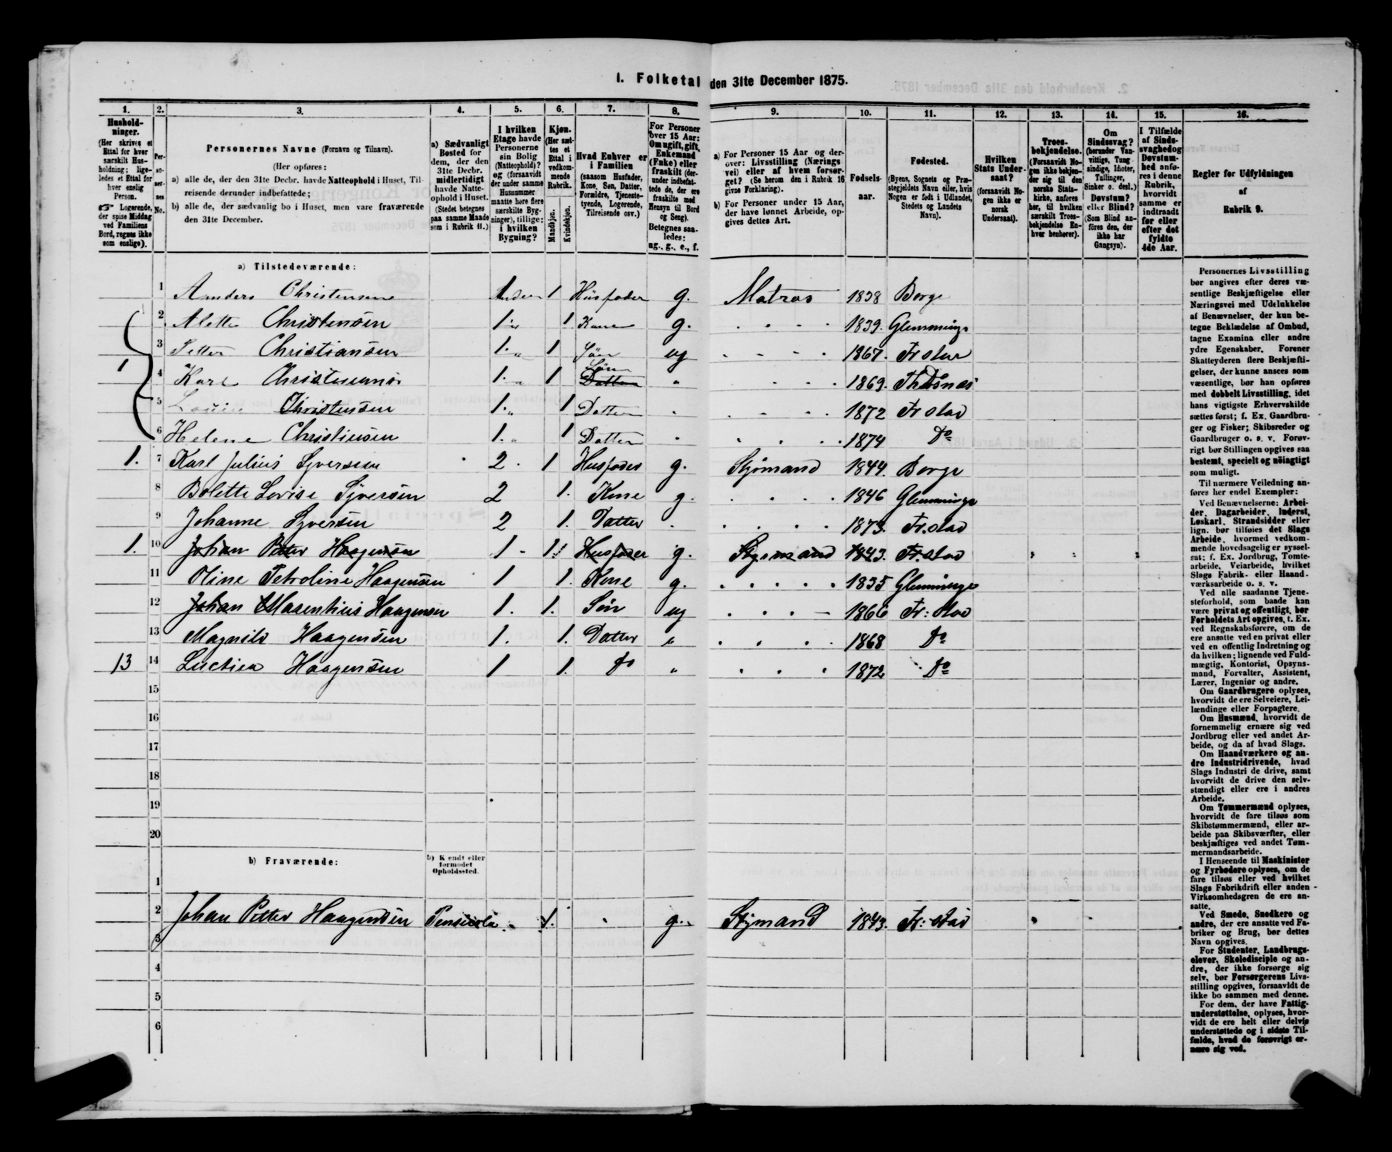 1. Folketal den 31te December 1875.
1. 2. 3. 4. 5. 6. 7. 8. 9. 10. 11. 12. 13. 14. 15. 16.
Hushold-
ninger.
(Her skrives et
Ettal for hver
særskilt Hus-
holdning; lige-
ledes et Ettal for
hver enslig
Person.
☞ Logerende,
der spise Middag
ved Familiens
Bord, regnes ikke
som enslige).
Personernes Navne (Fornavn og Tilnavn).
(Her opføres:
a) alle de, der den 31te Decbr. havde Natteophold i Huset, Til-
reisende derunder indbefattede;
b) alle de, der sædvanlig bo i Huset, men vare fraværende
den 31te December.
a) Sædvanligt
Bosted for
dem, der den
31te Decbr.
midlertidigt
havde Natte-
ophold i Huset.
(Stedet betegnes
paa samme Maade
som i Rubrik 11.)
I hvilken
Etage havde
Personerne
sin Bolig
(Natteophold)?
og (forsaavidt
der under samme
Husnummer
maatte høre flere
særskilte Byg-
ninger), tillige:
i hvilken
Bygning?
Kjøn.
(Her sæt-
tes et
Ettal i
vedkom-
mende
Rubrik.
Mandkjøn.
Kvindekjøn.
Hvad Enhver er
i Familien
(saasom Husfader,
Kone, Søn, Datter,
Forældre, Tjeneste-
tyende, Logerende,
Tilreisende osv.)
For Personer
over 15 Aar:
Om ugift, gift,
Enkemand
(Enke) eller
fraskilt (der-
under indbefat-
tede de, der ere
fraskilte med
Hensyn til Bord
og Seng).
Betegnes saa-
ledes:
ug., g., e., f.
a) For Personer 15 Aar og der-
over: Livsstilling (Nærings
vei) eller af hvem forsør-
get? (Se herom den i Rubrik 16
givne Forklaring).
b) For Personer under 15 Aar,
der have lønnet Arbeide, op-
gives dettes Art.
Fødsels-
aar.
Fødested.
(Byens, Sognets og Præ-
stegjeldets Navn eller, hvis
Nogen er født i Udlandet,
Stedets og Landets
Navn).
Hvilken
Stats Under-
saat?
(forsaavidt No-
gen ikke er
norsk
Undersaat).
Troes-
bekjendelse.
(Forsaavidt No-
gen ikke bekjen-
der sig til den
norske Stats-
kirke, anføres
her, til hvilken
særskilt Troes-
bekjendelse En-
hver henhører).
Om
Sindssvag?
(herunder Van-
vittige, Tung-
sindige, Idioter,
Tullinger,
Sinker o. desl.)
Døvstum?
eller Blind?
(Som Blind an-
føres den, der
ikke har
Gangsyn).
I Tilfælde
af Sinds-
svaghed og
Døvstum-
hed anfø-
res i denne
Rubrik,
hvorvidt
samme er
indtraadt
før eller
efter det
fyldte
4de Aar.
Regler for Udfyldningen
af
Rubrik 9.
a) Tilstedeværende:
1 Anders Christensen 1 1 Husfader g. Matros 1838 Borge
2 Christensen 1 1 Kone g. 1839. Glemminge
1 3 Christiansen 1 1 Søn ug 1867. Frstad
4 Karl 1 1 Søn Datter 1869.
5 Christensen 1 1 Datter 1872 Frstad
6 Helene Christensen 1 1 Datter 1874 Do
1. 7 Karl Julius Syversen 2 1 Husfader g. Styrmand 1844. Borge
8 Bolette Lovise Syversen 2 1. Kone g. 1846 Glemminge
9 Johanne Syversen 2 1. Datter 1873. Fr.stad
1. 10 Johan Petter Haagensen 1 1. Husfader g. Styrmand 1843. Fr.stad
11 Oline Petroline Haagensen 1 1. Kone g. 1835 Glemminge
12 Johan Haagensen 1. 1. Søn ug 1866 Fr: stad
13 Haagensen 1 1. Datter 1868 Do
13 14 Haagensen 1 1. Do 1872 Do
15
16
17
18
19
20
b) Fraværende:
b) Kjendt eller
formodet
Opholdssted.
1
2 Johan Petter Haagensen 1. g. Styrmand 1843. Fr: stad
3
4
5
6
Personernes Livsstilling
bør angives efter deres væ-
sentlige Beskjæftigelse eller
Næringsvei med Udelukkelse
af Benævnelser, der kun be-
tegne Beklædelse af Ombud,
tagne Examina eller andre
ydre Egenskaber. Forener
Skatteyderen flere Beskjæfti-
gelser, der kunne ansees som
væsentlige, bør han opføres
med dobbelt Livsstilling, idet
hans vigtigste Erhvervskilde
sættes først; f. Ex. Gaardbru-
ger og Fisker; Skibsreder og
Gaardbruger o. s. v. Forøv-
rigt bør Stillingen opgives saa
bestemt, specielt og nøiagtigt
som muligt.
Til nærmere Veiledning an-
føres her endel Exempler:
Ved Benævnelserne: Arbei-
der, Dagarbeider, Inderst,
Løskarl, Strandsidder eller
lign. bør tilføies det Slags
Arbeide, hvormed vedkom-
mende hovedsagelig er syssel-
sat; f. Ex. Jordbrug, Tomte-
arbeide, Veiarbeide, hvilket
Slags Fabrik- eller Haand-
værksarbeide o. s. v.
Ved alle saadanne Tjene-
steforhold, som baade kan
være privat og offentligt, bør
Forholdets Art opgives, f. Ex.
ved Regnskabsførere, om de
ere ansatte ved en privat eller
ved en offentlig Indretning og
da hvilken; lignende ved Fuld-
mægtig, Kontorist, Opsyns-
mand, Forvalter, Assistent,
Lærer, Ingeniør og andre.
Om Gaardbrugere oplyses,
hvorvidt de ere Selveiere, Lei-
lændinge eller Forpagtere.
Om Husmænd, hvorvidt de
fornemmelig ernære sig ved
Jordbrug eller ved andet Ar-
beide, og da af hvad Slags.
Om Haandværkere og an-
dre Industridrivende, hvad
Slags Industri de drive, samt
hvorvidt de drive den selv-
stændigt eller ere i andres
Arbeide.
Om Tømmermænd oplyses,
hvorvidt de fare tilsøs som
Skibstømmermænd, eller ar-
beide paa Skibsværfter, eller
beskjæftiges ved andet Tøm-
mermandsarbeide.
I Henseende til Maskinister
og Fyrbødere oplyses, om de
fare tilsøs eller ved hvilket
Slags Fabrikdrift eller anden
Virksomhedsgren de ere an-
satte.
Ved Smede, Snedkere og
andre, der ere ansatte ved Fa-
briker og Brug, bør dettes
Navn opgives.
For Studenter, Landbrugs-
elever, Skoledisciple og an-
dre, der ikke forsørge sig
selv, bør Forsørgerens Livs-
stilling opgives, forsaavidt de
ikke bo sammen med denne.
For dem, der have Fattig-
understøttelse, oplyses, hvor-
vidt de ere helt eller delvis
understøttede og i sidste Til-
fælde, hvad de forøvrigt er-
nære sig ved.